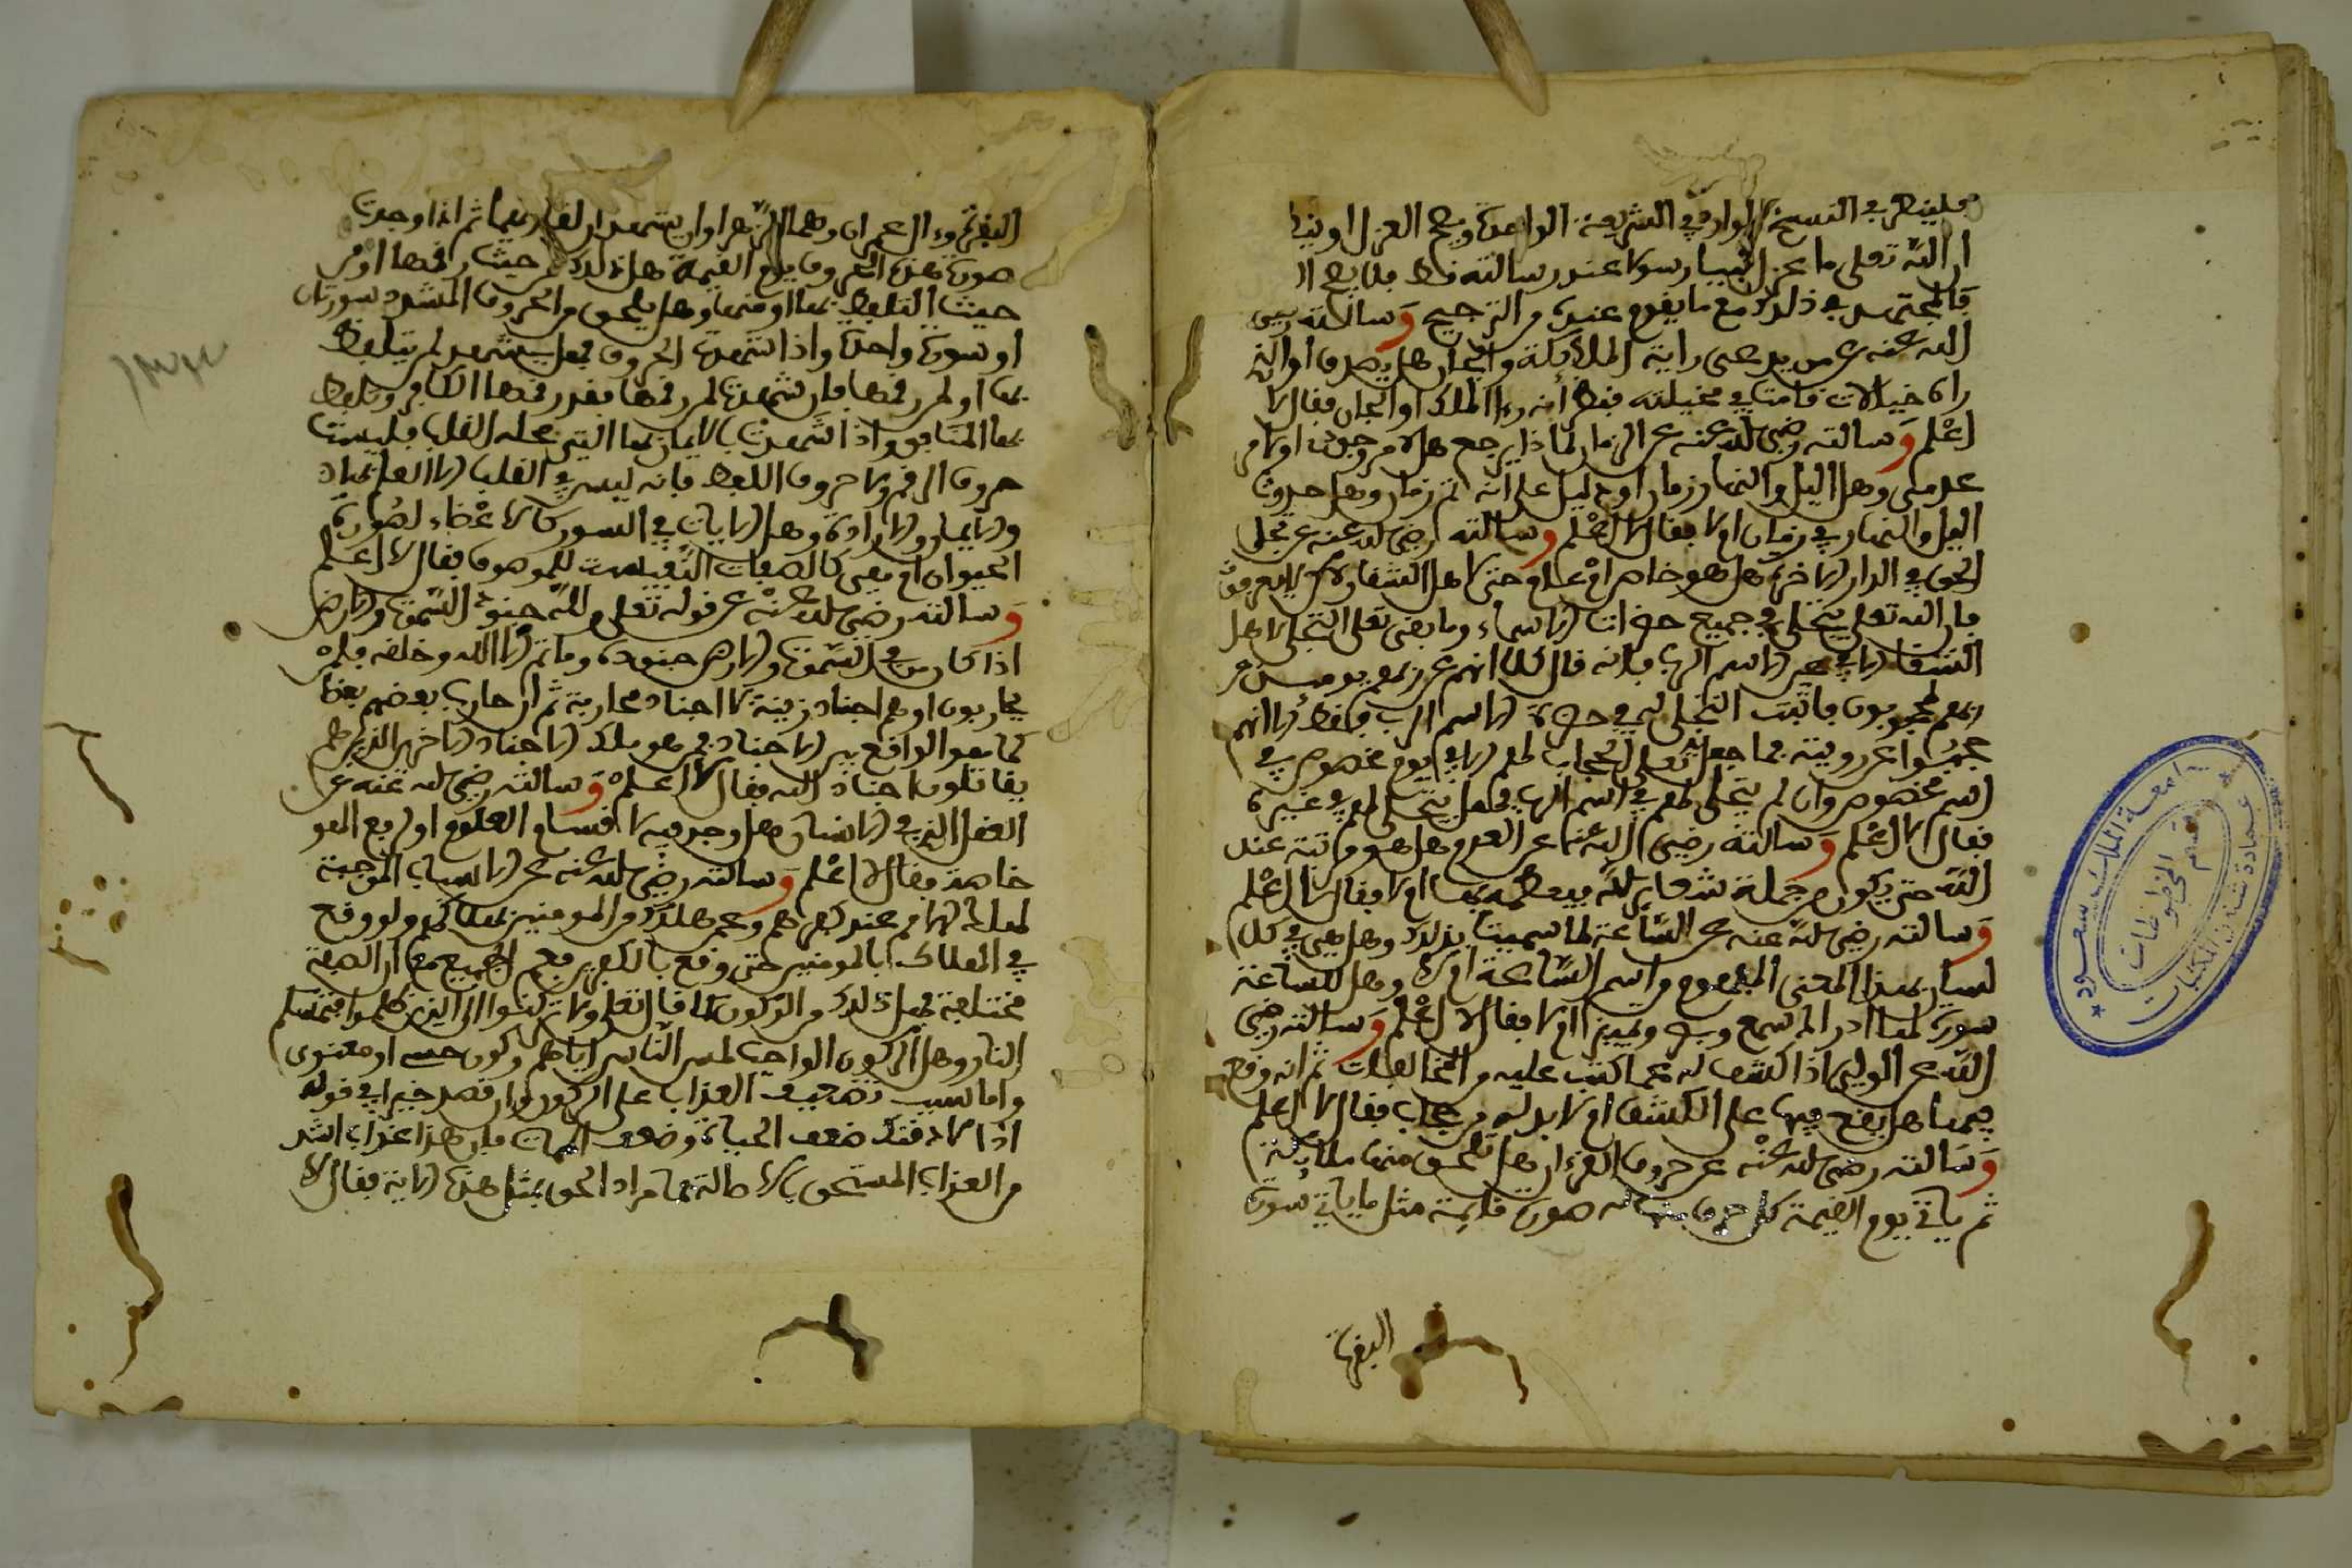 فلينظر في النسخ الوارد في الشريعة الواحدة ويصح العزل او ينظر
ان الله تعلى ما عزل نبيا رسولا عند رسالته قط فلا يصح
فالمجتهد في ذلك مع ما يقوم عنده من الترجيح وسالته رضي
الله عنه عمن يدعي راية الملائكة والجان هل يصدق او انه
راى خيالات قامت في مخيلته فظن أنه رءا الملك او الجان فقال لا
اعلم وسالته رضي الله عنه عن الزمان لماذا يرجع هل لامر وجودي او لامر
عدمي وهل اليل والنهار زمان او دليل على انه ثم زمان وهل حدوث
اليل والنهار في زمان ام لا فقال لا اعلم وسالته رضي الله عنه عن تجلي
الحق في الدار الاخرة هل هو خاص ام عام حتى لاهل الشقاء ولكن لا يعرفون
فان الله تعلى يتجلى في جميع حضرات الاسماء وما بقي تعلى التجلي لاهل
الشقا الا في غير الاسم الرب فانه قال كلا انهم عن ربهم يومئذ
ربهم لمحجوبون فاثبت التجلي لهم في حضرة الاسم الرب فقط الا انهم
حجبوا عن رويته فما جعل تعلى الحجاب لهم الا في يوم مخصوص في
اسم مخصوص وان لم يتجلى لهم في اسم الرب فهل يتجلى لهم في غيره
فقال لا اعلم وسالته رضي الله عنه عن العدم هل هو مرتبة عند
الله حتى يكون من جملة شعائر الله فيعظمه بها ام لا فقال لا اعلم
وسالته رضي الله عنه عن الساعة لما سميت بذلك وهل هي في كل
لسان بهذا المعنى المفهوم من اسم الساعة ام لا وهل للساعة
صورة لها ادراك سمع وبصر وتمييز ام لا فقال لا اعلم وسالته رضي
الله عن الولي اذا كشف له عما كتب عليه من المخالفات ثم انه وقع
فيها هل يقع فيها على الكشف ام لا بد له من حجاب فقال لا اعلم
وسالته رضي الله عنه عن حروف القرءان هل تخلق منها ملائكة
ثم ياتي يوم القيمة كل حرف منها له صورة قائمة مثل ما ياتي سورة
البقرة
البقرة وءال عمران وهما الزهراوان يشهدان لقارئهما ثم اذا وجدت
صورة هذه الحروف يوم القيمة هل ذلك من حيث رقمها او من
حيث التلفظ بها او منهما وهل يخلق من الحروف المشددة صورتان
او صورة واحدة واذا شهدت الحروف فهل يشهد لم يتلفظ
بها او لم رقمها فان شهدت لم رقمها فقد رقمها الكافر وتلفظ
بها المنافق واذا شهدت بالايمان بها التي محله القلب فليست
حروف الرقم ولا حروف اللفظ فانه ليس في القلب الا العلم بها
والايمان والارادة وهل الايات في السور كالاعضاء لصورة
الحيوان ام هي كالصفات النفسية للموصوف فقال لا اعلم
وسالته رضي الله عنه عن قوله تعلى ولله جنود السموت والارض
اذا كان من في السموت والارض جنوده وما ثم الا الله وخلقه فلمن
يحاربون او هم اجناد زينة لا اجناد محاربة ثم ان حارب بعضهم بعضا
كما هو الواقع من الاجناد فمن هو ملك الاجناد الاخرى الذين هم
يقاتلون اجناد الله فقال لا اعلم وسالته رضي الله عنه عن
العقل الذي في الانسان هل وجد فيه لاقتناء العلوم او لدفع الهوى
خاصة فقال لا اعلم وسالته رضي الله عنه عن الاسباب الموجبة
لهلاك الامم عند كفرهم وعم هلاك من المومنين بهلاكهم ولو وقع
في الهلاك بالمومنين حتى وقع بالكفر فعم الجميع مع ان الصفة
مختلفة فهل ذلك من الركون كما قال تعلى ولا تركنوا الى الذين ظلموا فتمسكم
النار وهل الركون الواجب لمس النار اياهم ركون حسي او معنوي
واما سبب تضعيف العذاب على الركون وان قصد خيرا في قوله
اذا لاذقنك ضعف الحياة وضعف الممات فان هذا عذاب اشد
من العذاب المستحق بالاصالة فما مراد الحق بمثل هذه الاية فقال لا
جامعة الملك سعود
عمادة شئون المكتبات
قسم المخطوطات